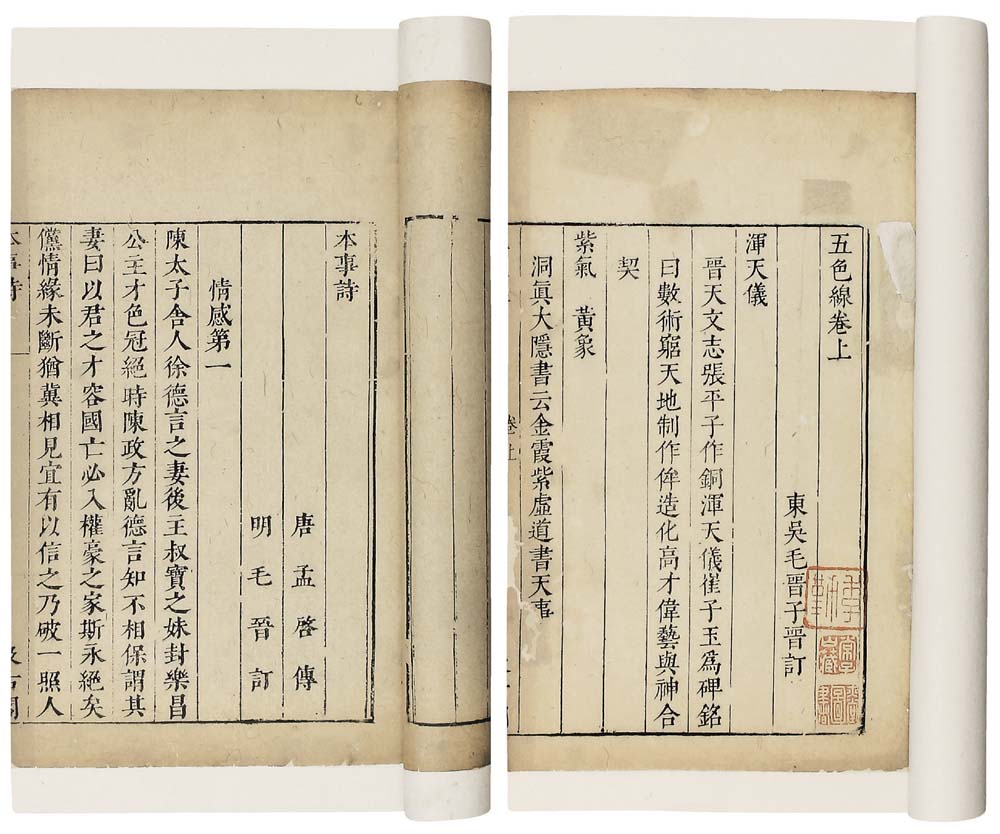 五色線卷上
東吳毛晉子晉訂
渾天儀
晉天文志張平子作銅渾天儀崔子玉爲碑銘
曰數術窮天地制作侔造化高才偉藝與神合
契
紫氣　黃象
洞眞大隱書云金霞紫虛道書天事
卷上
本事詩
唐孟啓傳
明毛晉訂
情感第一
陳太子舎人徐德言之妻後主叔寶之妹封樂昌
公主才色冠絕時陳政方亂德言知不相保謂其
妻曰以君之才容國亡必入權豪之家斯永絕矣
儻情緣未斷猶冀相見宜有以信之乃破一照人
本事詩
一
汲古閣